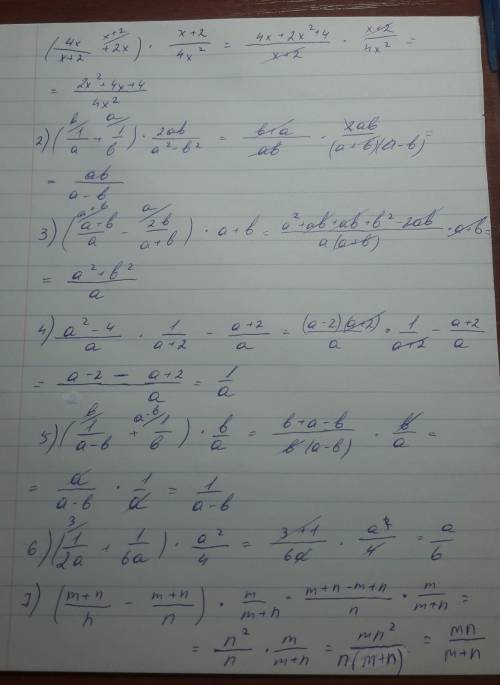 (4x/x+2 x+2/ +2x) · x+2/4x² = 4x+2x²+4/x+2 · x+2/4x² =
= 2x²+4x+4/4x²
2) (b/ 1/a + a/ 1/b) · 2ab/a²-b² = b+a/ab · 2ab/(a+b)(a-b) =
= ab/a-b
3) (a+b/ a+b/a - a/ 2b/a+b) · a+b = a²+ab+ab+b²-2ab/a(a+b) · a+b =
= a²+b²/a
4) a²-4/a · 1/a+2 - a+2/a = (a-2)(a+2)/a · 1/a+2 - a+2/a
= a-2 - a+2/a = 1/a
5) (b/ 1/a-b + a-b/ 1/b) · b/a = b+a-b/b(a-b) · b/a =
= a/a-b · 1/a = 1/a-b
6) (3/ 1/2a + 1/6a) · a²/4 = 3+1/6a · a²/4 = a/6
7) (m+n/n - m+n/n) · m/m+n = m+n-m+n/n · m/m+n =
= n²/n · m/m+n = mn²/n(m+n) = mn/m+n